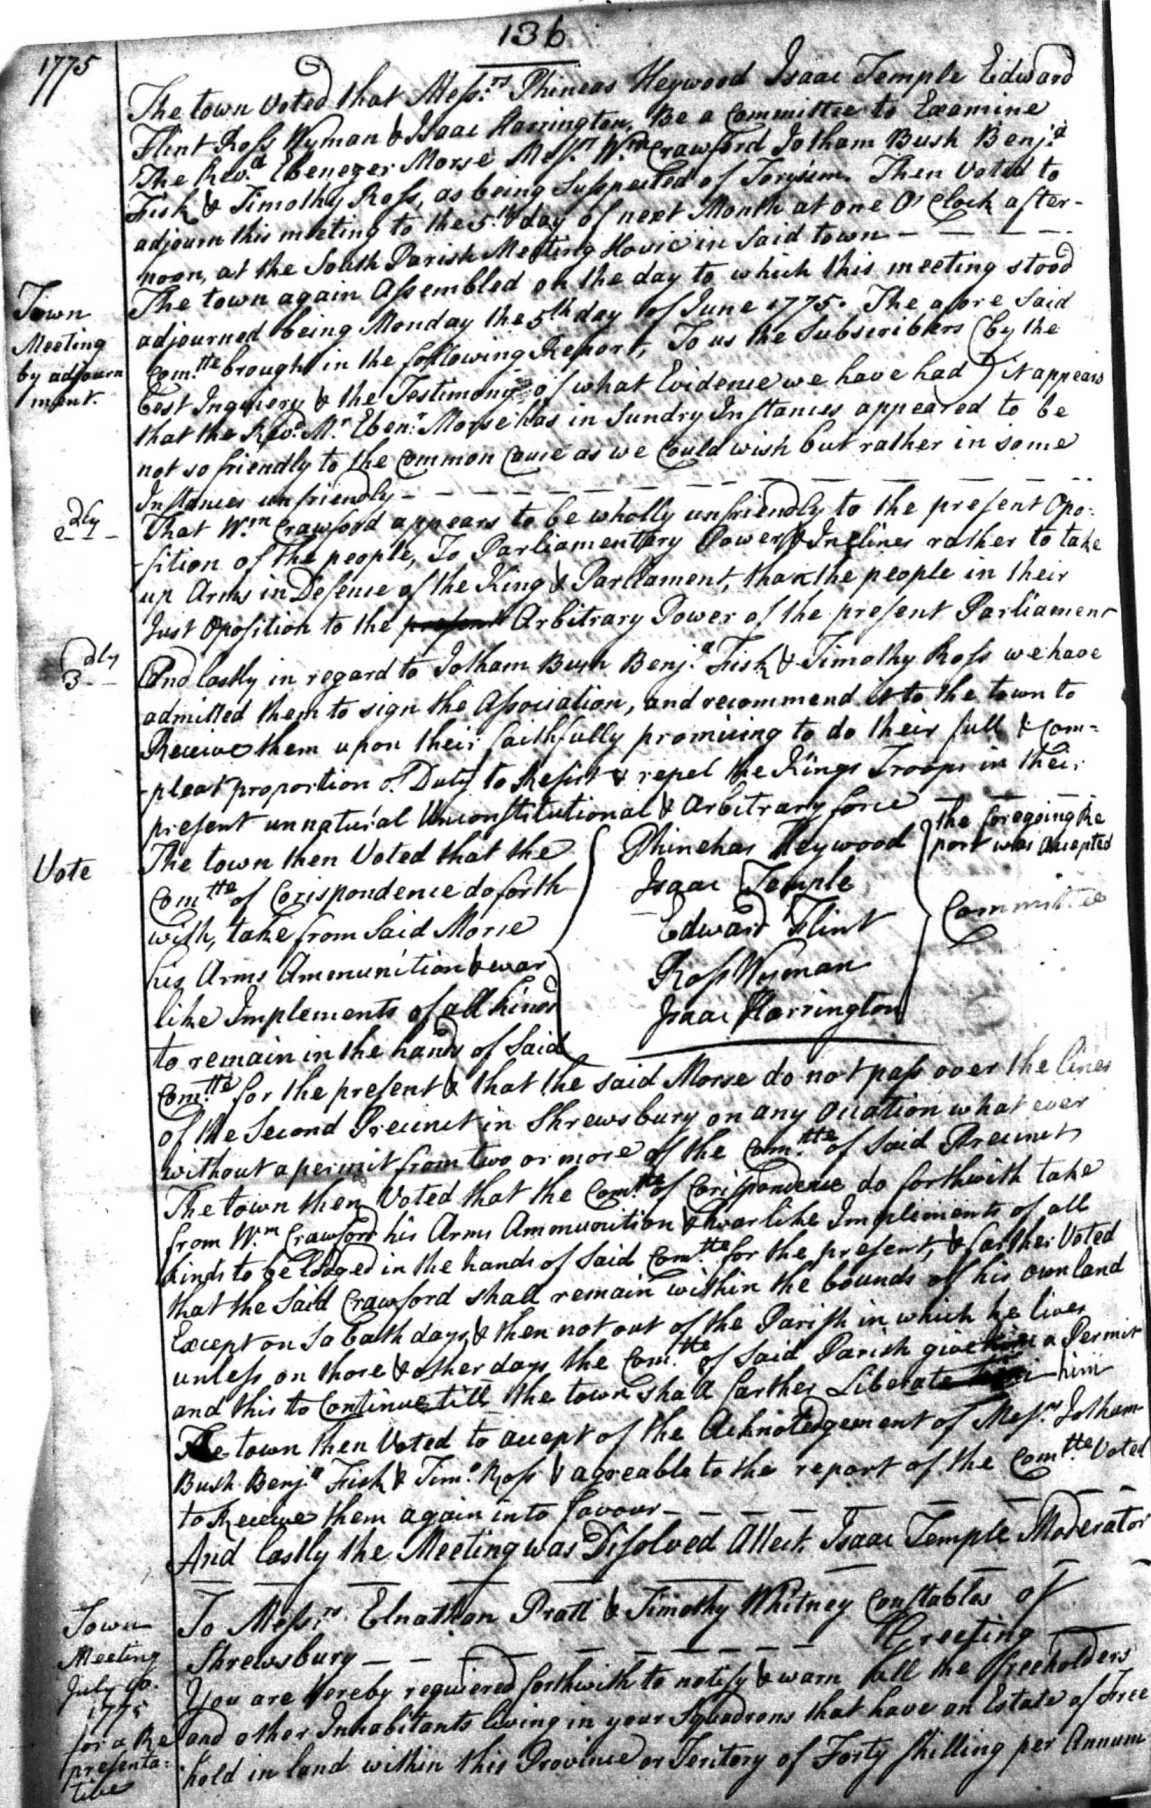 136
1775
The town Voted that Mess.rs Phineas Heywood Isaac Temple Edward
Flint Ross Wyman & Isaac Harrington, Be a Committee to Examine
The Rev.d Ebenezer Morse Mess.rs W.m Crawford Jotham Bush Benj.a
Fisk & Timothy Ross, as being Suspected of Toryism. Then Voted to
adjourn this meeting to the 5.th day of next Month at one O'Clock after-
noon, at the South Parish Meeting House in Said town
Town
Meeting
by adjourn
ment.
The town again Assembled on the day to which this meeting stood
adjourned being Monday the 5th day of June 1775. The afore Said
Com.tte brought in the following Report, To us the Subscribers (by the
best Inquiery & the Testimony of what Evidence we have had) it appears
that the Rev.d M.r Eben.r Morse has in Sundry Instances appeared to be
not so friendly to the Common Cause as we Could wish but rather in some
Instances unfriendly
2dly
That W.m Crawford appears to be wholly unfriendly to the present Opo-
sition of the people, To Parliamentary Power & Inclines rather to take
up Arms in Defense of the King & Parliament, than the people in their
Just Oposition to the present Arbitrary Power of the present Parliament
3dly
And lastly in regard to Jotham Bush Benj.a Fisk & Timothy Ross we have
admitted them to sign the Association, and recommend it to the town to
Receive them upon their faithfully promising to do their full & Com-
pleat proportion of Duty to Resist & repel the Kings Troops in their
present unnatural Unconstitutional & Arbitrary force
the foregoing Re
port was Accepted
Vote
The town then Voted that the
Com.tte of Corispondence do forth
with, take from Said Morse
his Arms Amenunition & war
like Implements of all kinds
to remain in the hands of Said
Phinehas Heywood
Isaac Temple
Edward Flint
Ross Wyman
Isaac Harrington
Committee
Com.tte for the present & that the said Morse do not pass over the lines
of the Second Precinct in Shrewsbury on any Ocation what ever
without a permit from two or more of the Com.tte of Said Precinct
The town then Voted that the Com.tte of Corispondence do forthwith take
from W.m Crawford his Arms Ammunition & warlike Impliments of all
kinds to be lodged in the hands of Said Com.tte for the present, & farther Voted
that the Said Crawford shall remain within the bounds of his own land
Except on Sabath days & then not out of the Parish in which he lives
unless on those & other days the Com.tte of Said Parish give him a Permit
and this to Continue till the town shall farther Liberate him
The town then Voted to accept of the Acknoledgement of Mess.rs Jotham
Bush Benj.a Fisk & Tim.o Ross & agreable to the report of the Com.tte Voted
to Receive them again into favour
And lastly the Meeting was Disolved Attest. Isaac Temple Moderator
Town
Meeting
July 10.
1775
for a Re
presenta-
tive
To Mess.rs Elnathan Pratt & Timothy Whitney Constables of
Shrewsbury Greeting
You are Hereby requiered forthwith to notify & warn all the freeholders
and other Inhabitants living in your Squadrons that have an Estate of Free
hold in land within this Province or Teritory of Forty shilling per Annum